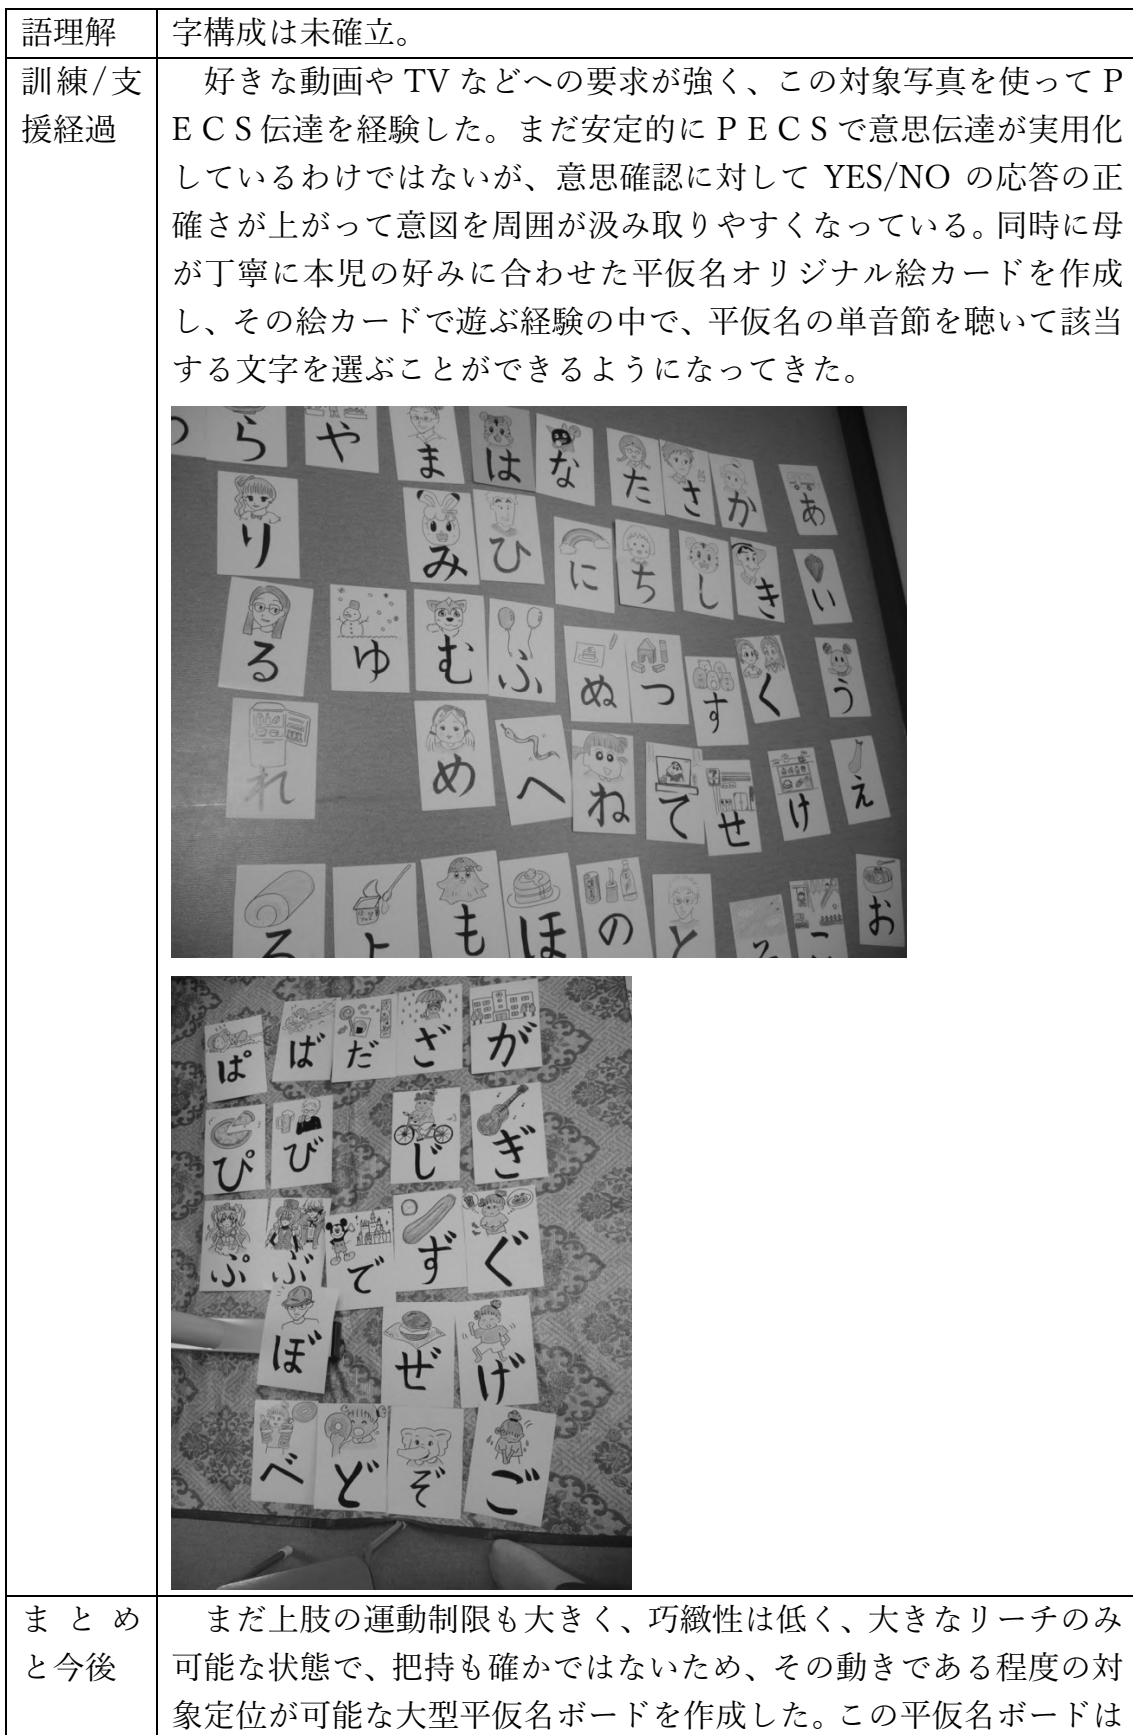 語理解
字構成は未確立。
訓練/支
援経過
好きな動画や TV などへの要求が強く、この対象写真を使ってＰ
ＥＣＳ伝達を経験した。まだ安定的にＰＥＣＳで意思伝達が実用化
しているわけではないが、意思確認に対して YES/NO の応答の正
確さが上がって意図を周囲が汲み取りやすくなっている。同時に母
が丁寧に本児の好みに合わせた平仮名オリジナル絵カードを作成
し、その絵カードで遊ぶ経験の中で、平仮名の単音節を聴いて該当
する文字を選ぶことができるようになってきた。
ら や ま は な た さ か あ
り み ひ に ち し き い
る ゆ む ふ ぬ つ す く う
れ め へ ね て せ け え
ろ よ も ほ の と そ こ お
ぱ ば だ ざ が
ぴ び じ ぎ
ぷ ぶ で ず ぐ
ぼ ぜ げ
べ ど ぞ ご
まとめ
と今後
まだ上肢の運動制限も大きく、巧緻性は低く、大きなリーチのみ
可能な状態で、把持も確かではないため、その動きである程度の対
象定位が可能な大型平仮名ボードを作成した。この平仮名ボードは